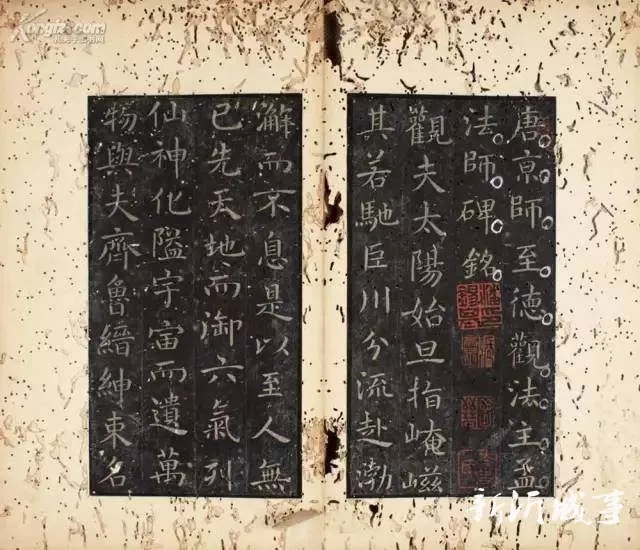 Kongfz.com
唐京師至德觀法主孟
法師碑銘
觀夫太陽始旦指崦嵫
其若馳巨川分流赴渤
澥而不息是以至人無
已先天地而御六氣列
仙神化隘宇宙而遺萬
物與夫齊魯縉紳束名
新沂城事